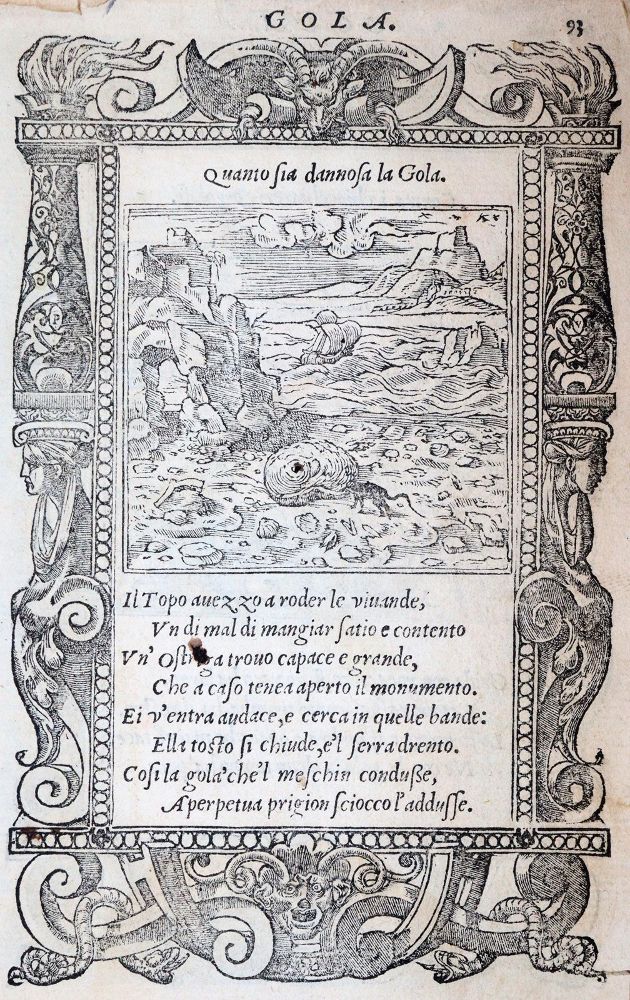 GOLA.
93
Quanto sia dannosa la Gola.
Il Topo auezzo a roder le viuande,
Vn di mal di mangiar satio e contento
Vn' Ostriga trouo capace e grande,
Che a caso tenea aperto il monumento.
Ei v'entra audace, e cerca in quelle bande:
Ella tosto si chiude, e'l serra drento.
Cosi la gola che'l meschin condusse,
A perpetua prigion sciocco l'addusse.